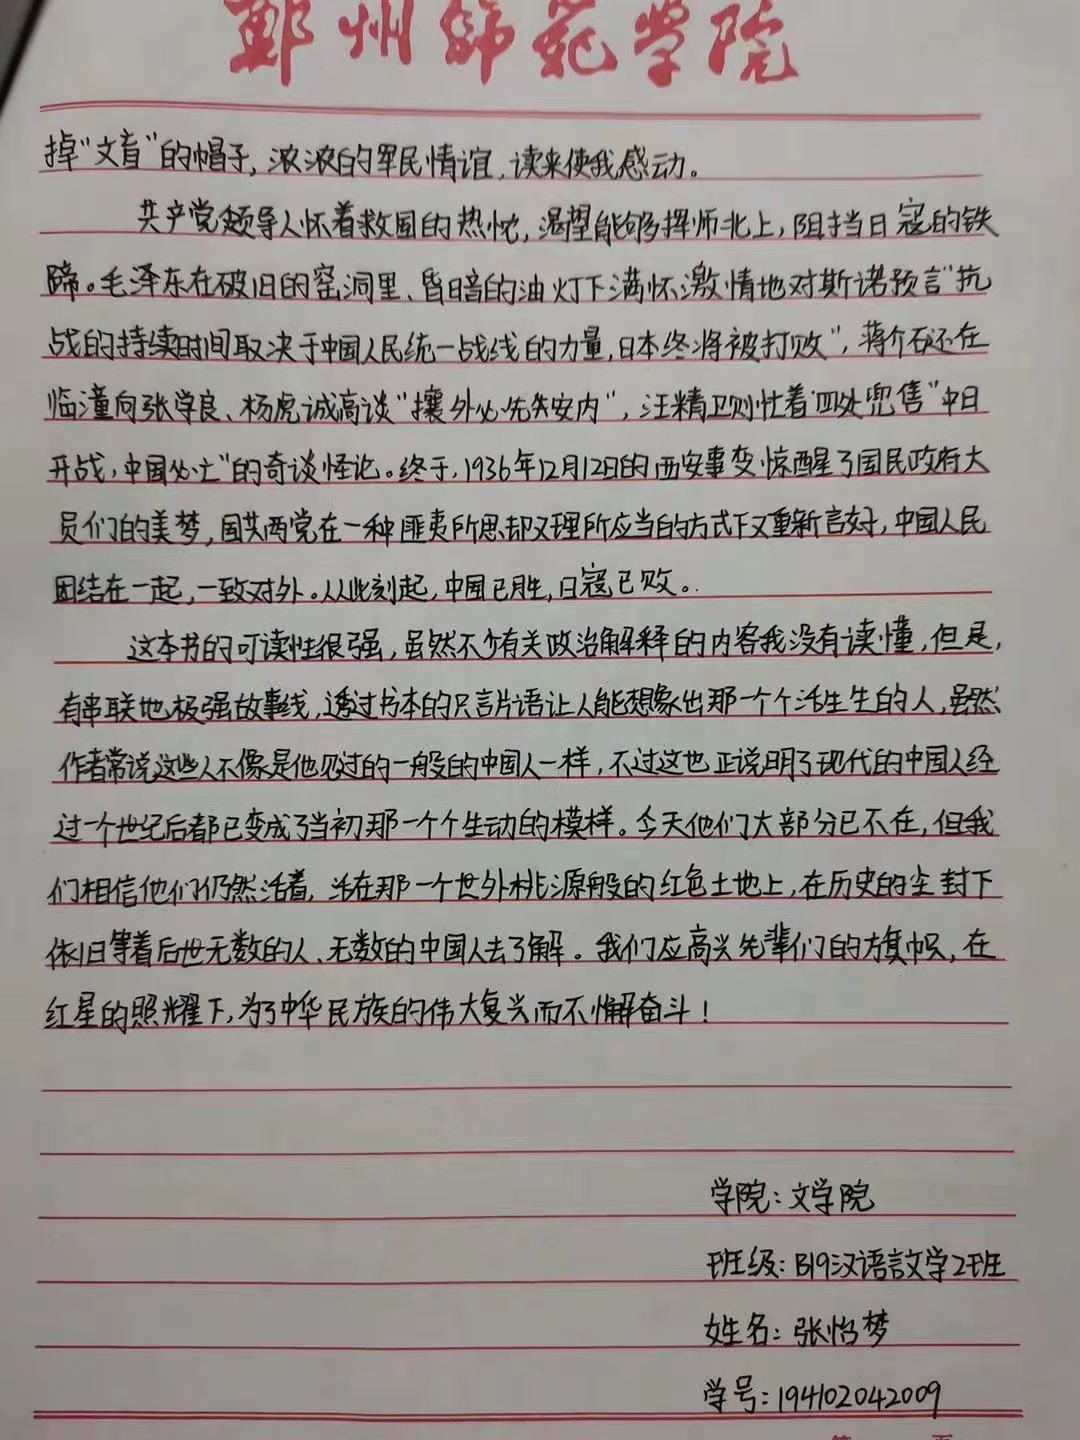 鄭州師範学院
掉“文盲”的帽子，浓浓的军民情谊，读来使我感动。
共产党领导人怀着救国的热忱，渴望能够挥师北上，阻挡日寇的铁
蹄。毛泽东在破旧的窑洞里、昏暗的油灯下满怀激情地对斯诺预言“抗
战的持续时间取决于中国人民统一战线的力量，日本终将被打败”，蒋介石还在
临潼向张学良、杨虎诚高谈“攘外必先安内”，汪精卫则忙着四处兜售“中日
开战，中国必亡”的奇谈怪论。终于，1936年12月12日的西安事变惊醒了国民政府大
员们的美梦，国共两党在一种匪夷所思却又理所应当的方式下又重新言好，中国人民
团结在一起，一致对外。从此刻起，中国已胜，日寇已败。
这本书的可读性很强，虽然不少有关政治解释的内容我没有读懂，但是，
有串联地极强故事线，透过书本的只言片语让人能想象出那一个个活生生的人，虽然
作者常说这些人不像是他见过的一般的中国人一样，不过这也正说明了现代的中国人经
过一个世纪后都已变成了当初那一个个生动的模样。今天他们大部分已不在，但我
们相信他们仍然活着，活在那一个世外桃源般的红色土地上，在历史的尘封下
依旧等着后世无数的人、无数的中国人去了解。我们应高兴先辈们的旗帜，在
红星的照耀下，为了中华民族的伟大复兴而不懈奋斗！
学院：文学院
班级：B19汉语言文学2班
姓名：张怡梦
学号：194102042009